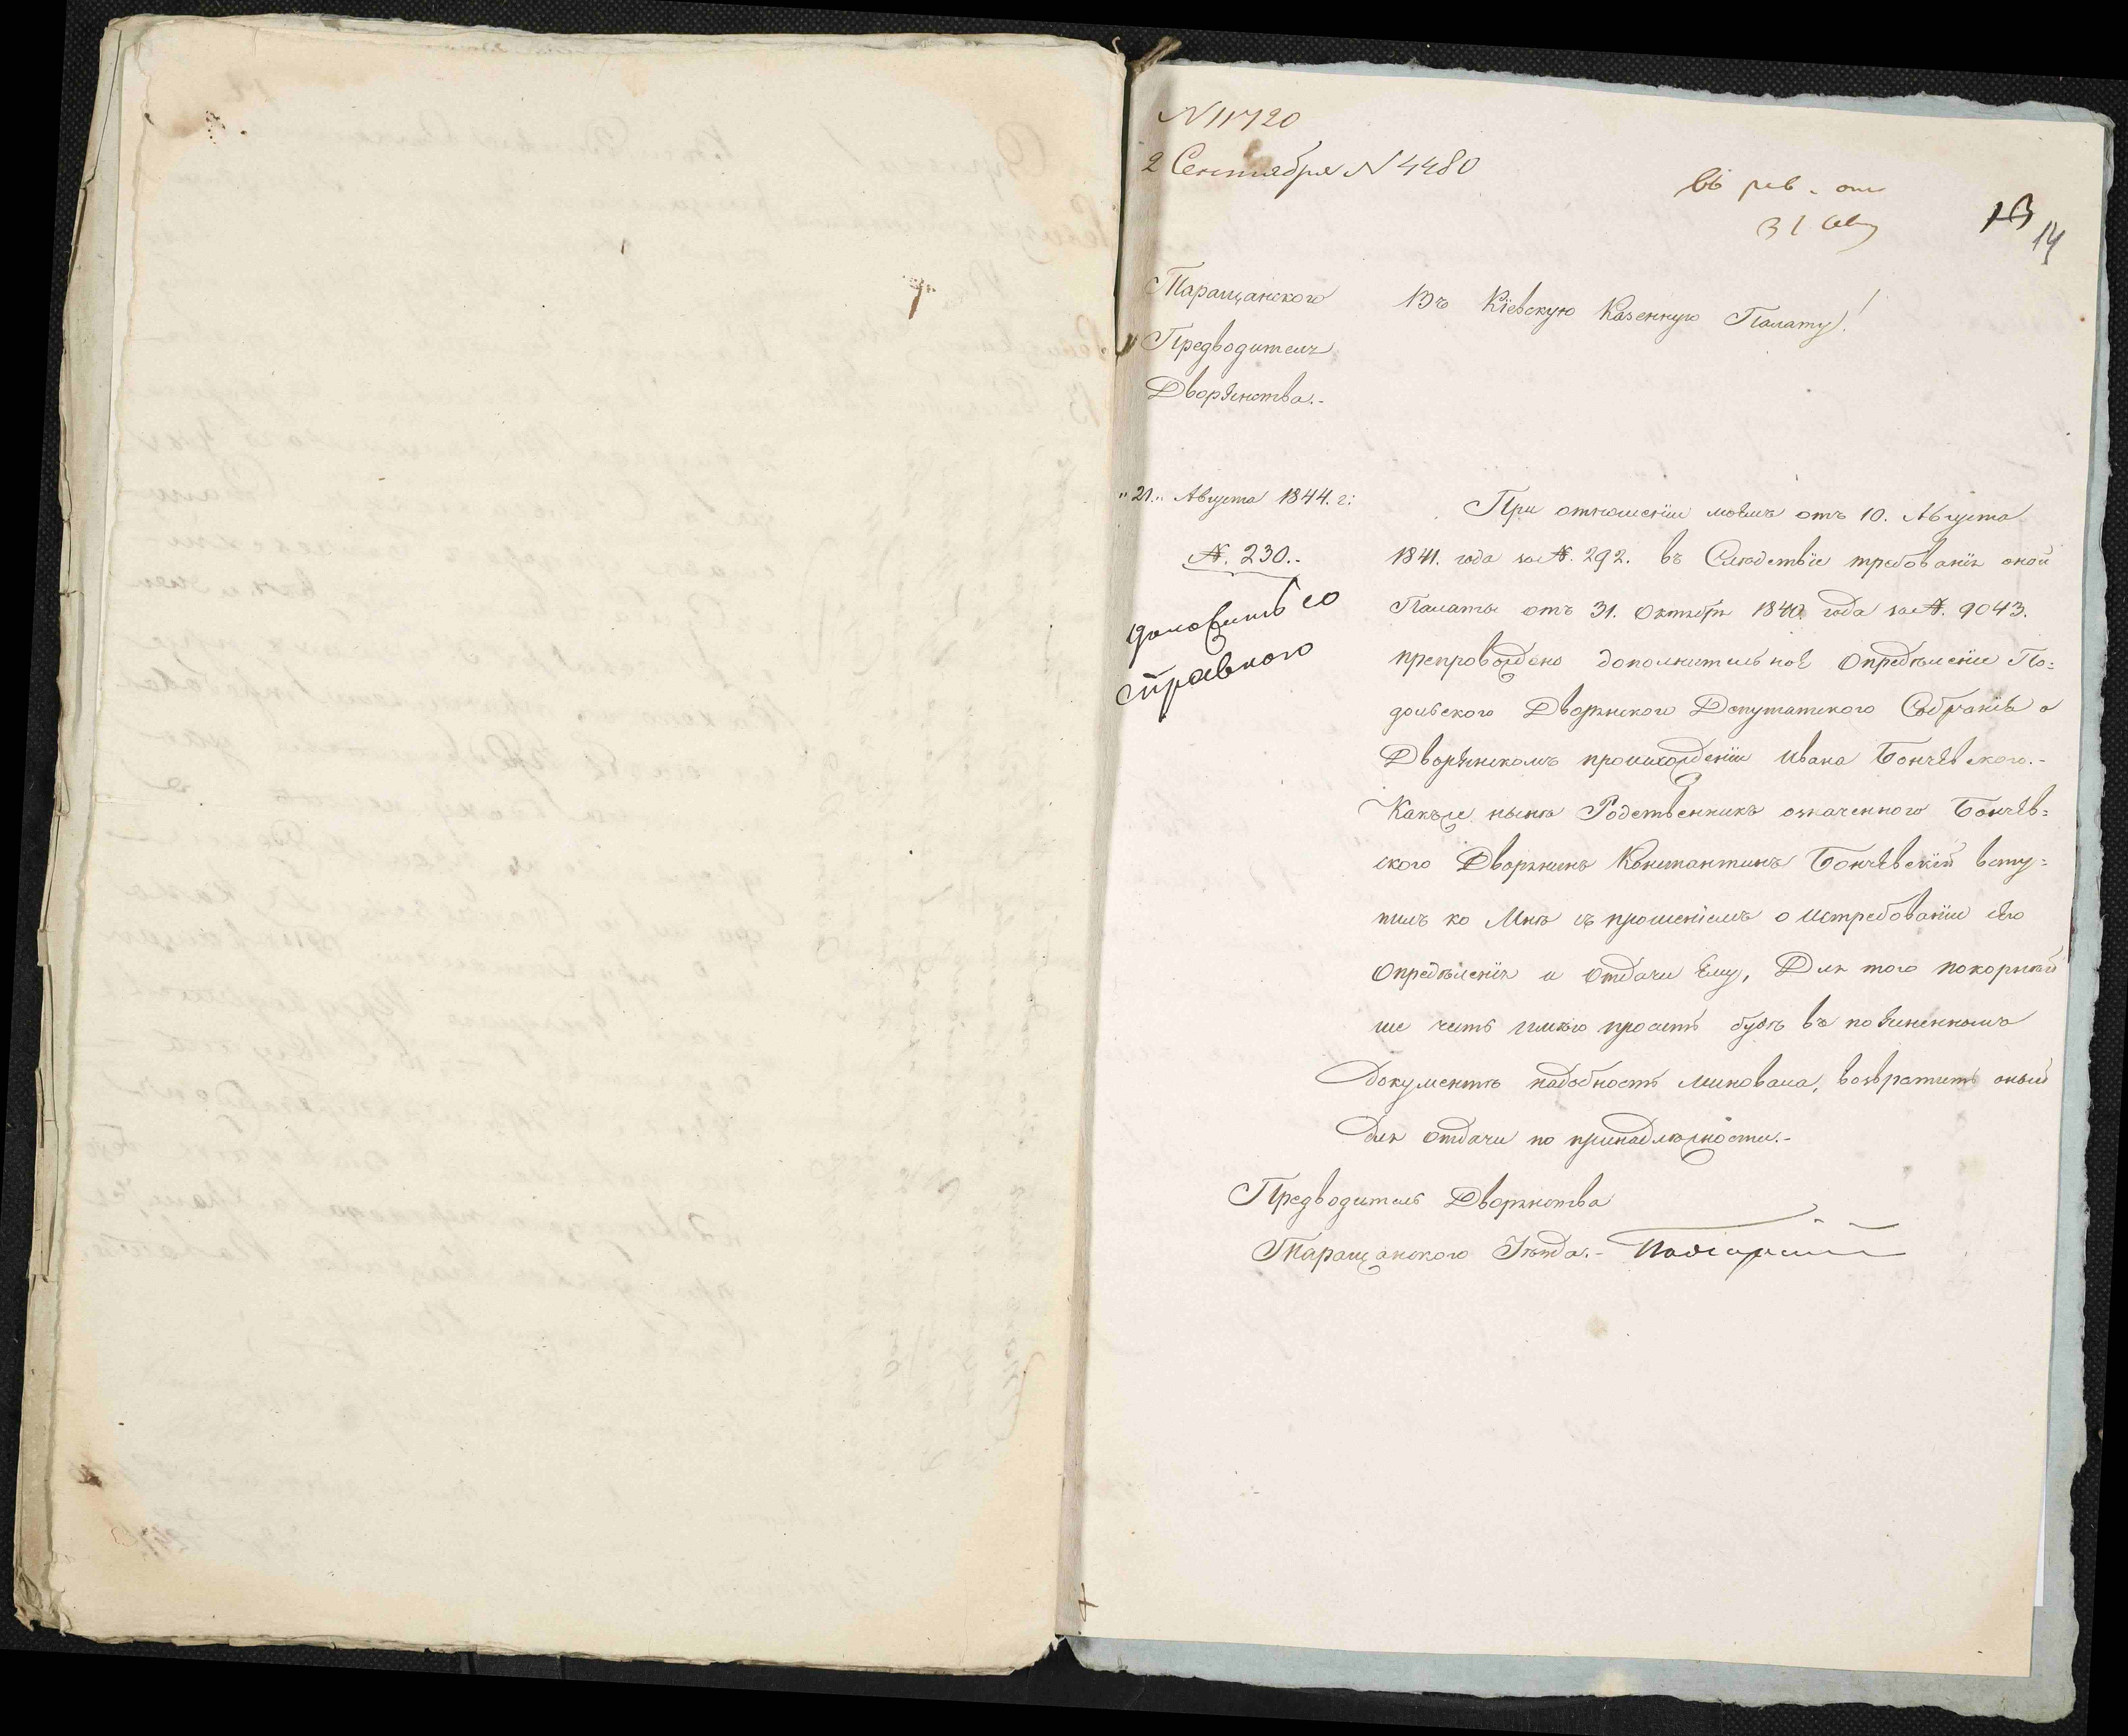 N 11720
2 Сентября N 4480
въ рев. от
31 Авг
13
14
Таращанского
Предводителя
Дворянства.-
Въ Кіевскую Казенную Палату!
"21." Августа 1844. г:
№. 230.-
доложить со
справкою
При отношеніи моемъ отъ 10. Августа
1841. года за №. 292. въ Слѣдствіе требованія оной
Палаты отъ 31. Октября 1840. года за №. 9043.
препровождено дополнительное Опредѣленіе По=
дольского Дворянского Депутатского Собранія о
Дворянскомъ происхожденіи Ивана Бончевского.-
Какъже нынѣ Родственникъ означенного Бончев=
ского Дворянинъ Константинъ Бончевскій всту=
пилъ ко Мнѣ съ прошеніемъ о истребованіи его
Опредѣленія и Отдачи Ему, Для того покорнѣй
ше честь имѣю просить будѣ въ поясненномъ
Документѣ надобность миновала, возвратить оный
для Отдачи по принадлежности.-
Предводитель Дворянства
Таращанского Уѣзда.-